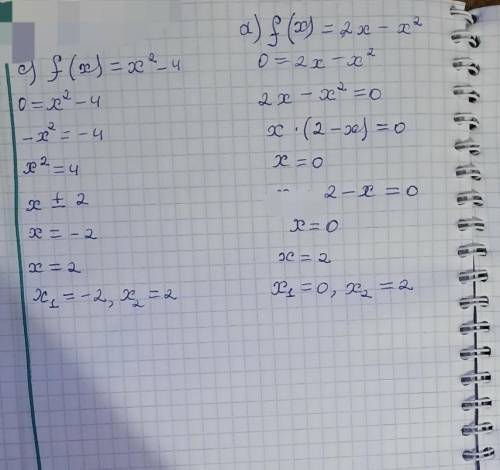 c) f(x) = x² - 4
0 = x² - 4
-x² = -4
x² = 4
x ± 2
x = -2
x = 2
x₁ = -2, x₂ = 2
d) f(x) = 2x - x²
0 = 2x - x²
2x - x² = 0
x · (2 - x) = 0
x = 0
2 - x = 0
x = 0
x = 2
x₁ = 0, x₂ = 2